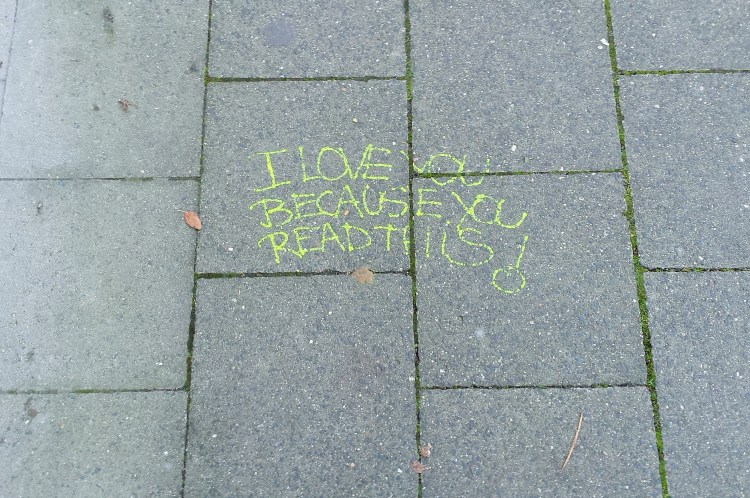 I LOVE YOU
BECAUSE YOU
READ THIS!